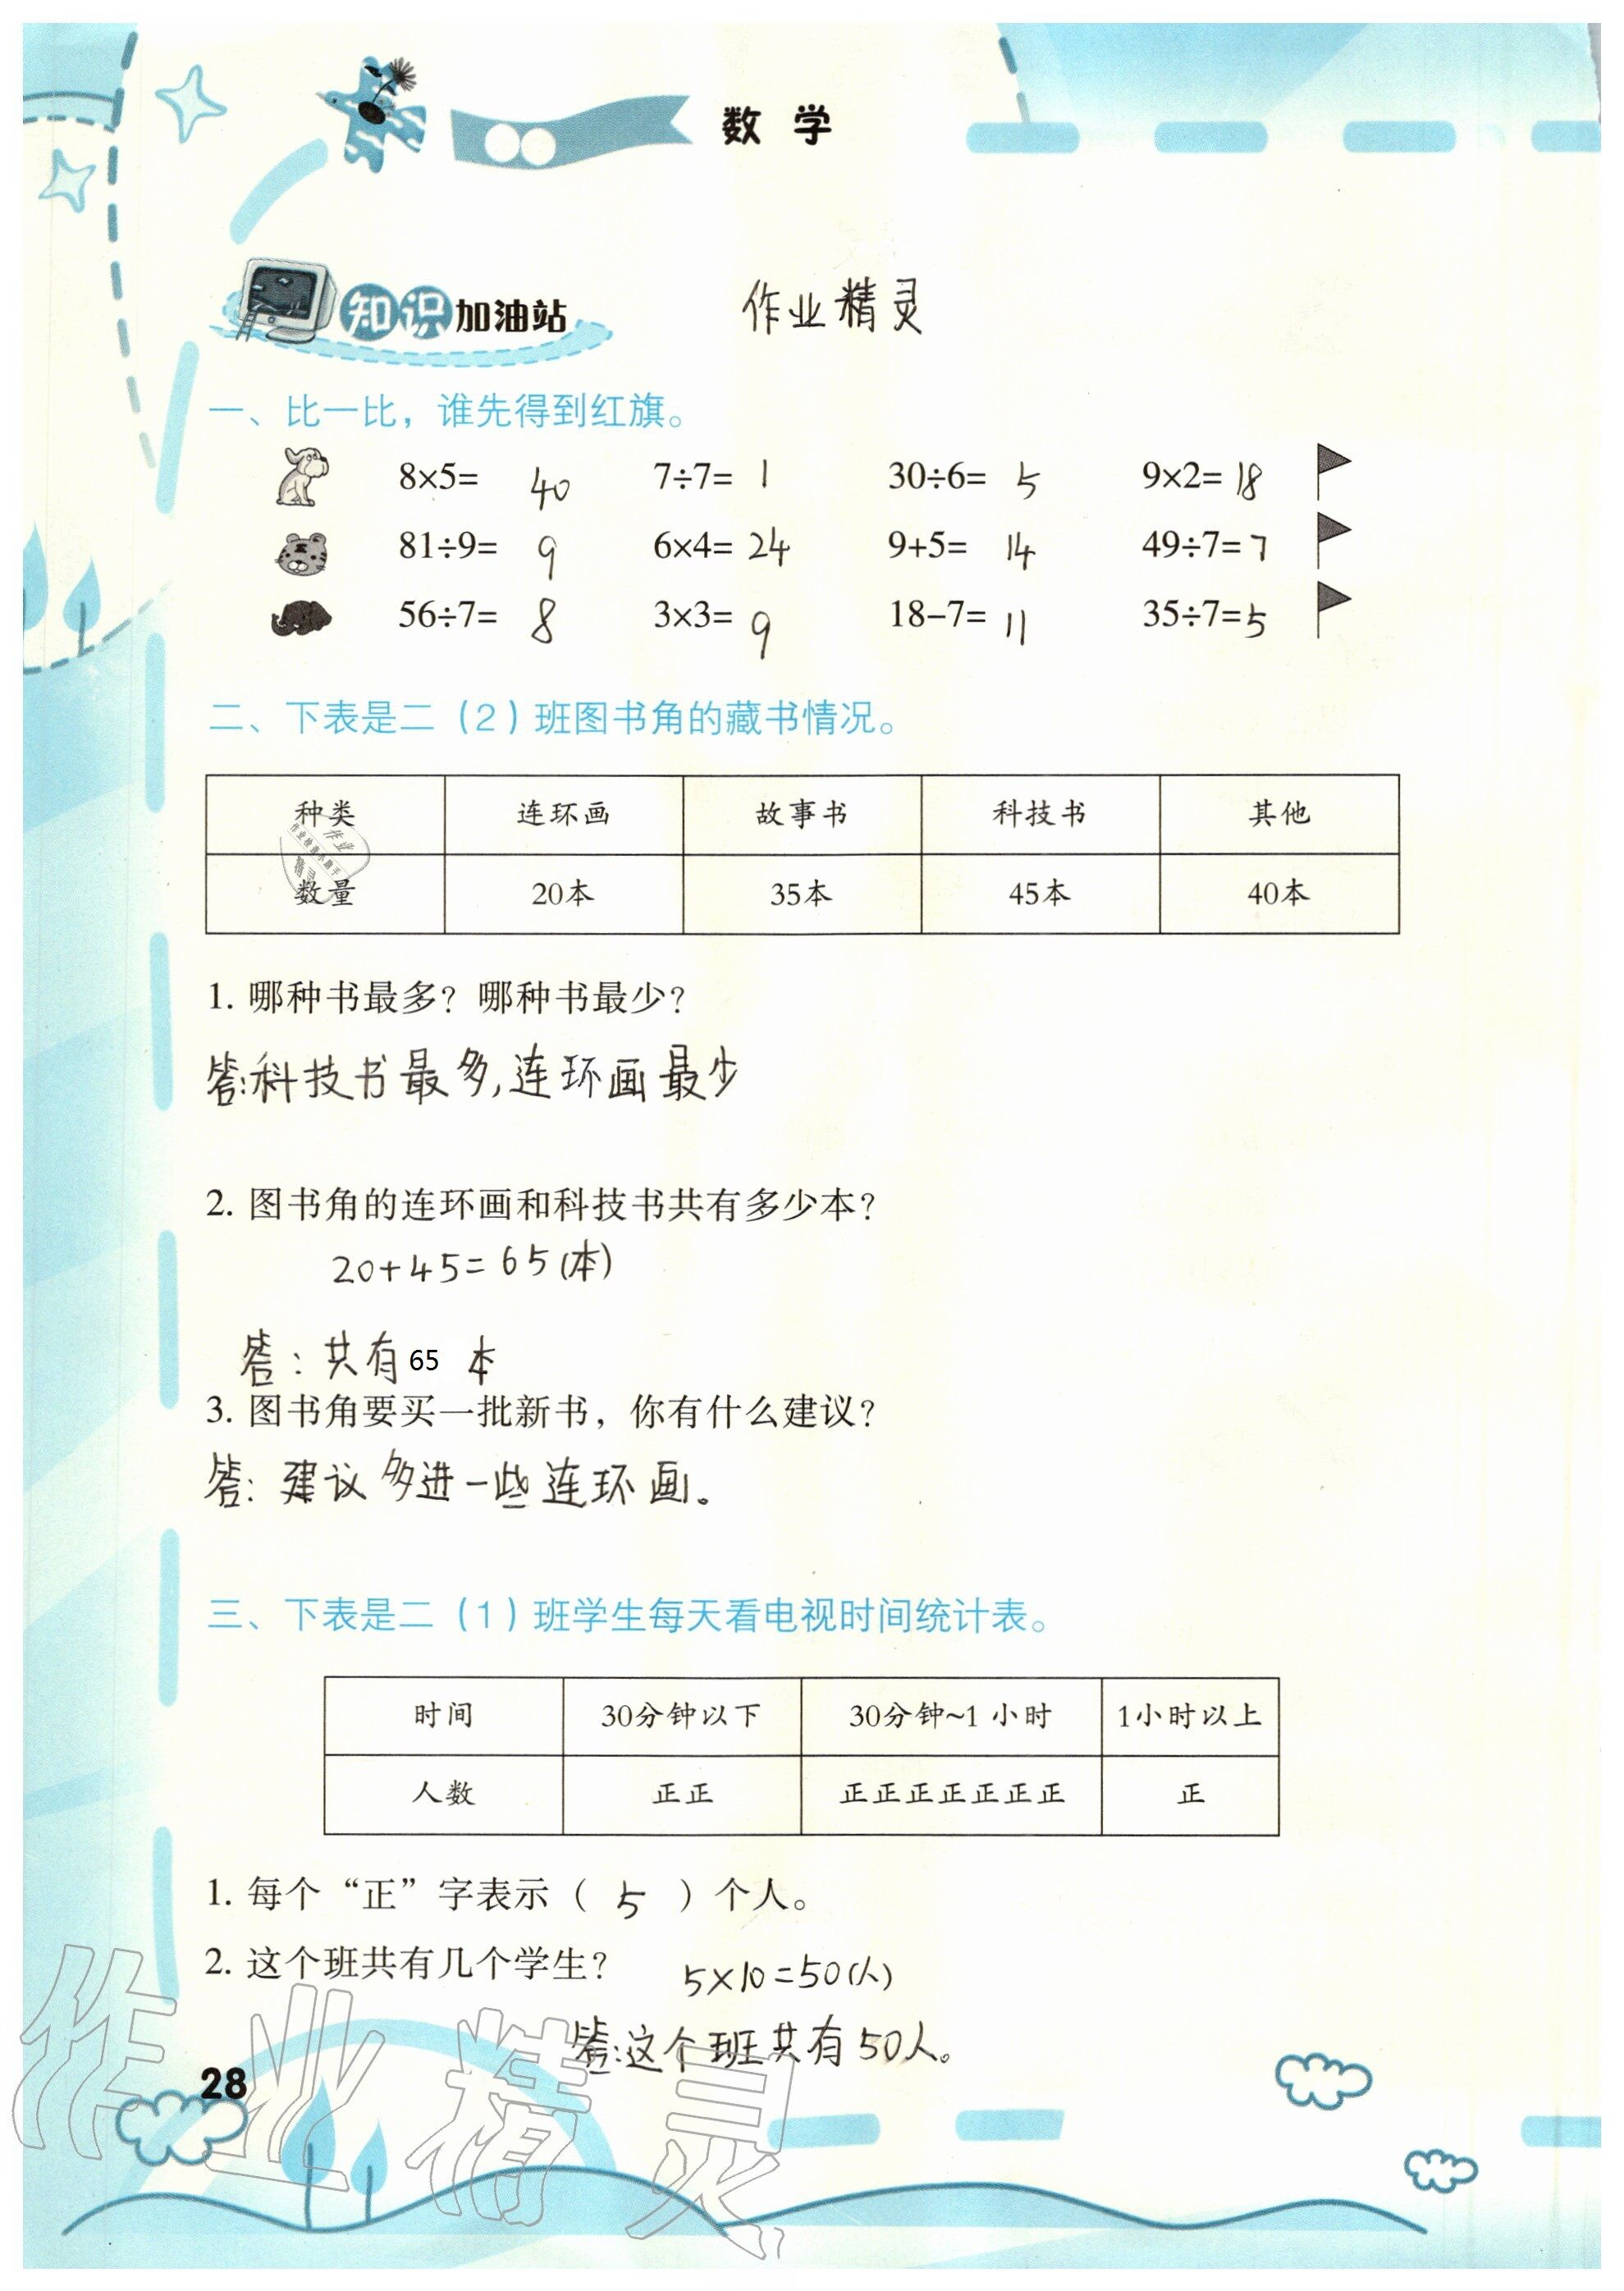 数 学
知识加油站 作业精灵
一、比一比，谁先得到红旗。
8×5= 40 7÷7= 1 30÷6= 5 9×2= 18
81÷9= 9 6×4= 24 9+5= 14 49÷7= 7
56÷7= 8 3×3= 9 18-7= 11 35÷7= 5
二、下表是二（2）班图书角的藏书情况。
种类 连环画 故事书 科技书 其他
数量 20本 35本 45本 40本
1. 哪种书最多？哪种书最少？
答:科技书最多,连环画最少
2. 图书角的连环画和科技书共有多少本？
20+45=65(本)
答：共有65 本
3. 图书角要买一批新书，你有什么建议？
答：建议多进一些连环画。
三、下表是二（1）班学生每天看电视时间统计表。
时间 30分钟以下 30分钟~1 小时 1小时以上
人数 正正 正正正正正正正 正
1. 每个“正”字表示（ 5 ）个人。
2. 这个班共有几个学生？ 5×10=50(人)
答:这个班共有50人。
28
作业精灵